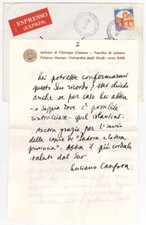 ESPRESSO
(EXPRÈS)
2
Istituto di Filologia Classica - Facoltà di Lettere
Palazzo Ateneo - Università degli Studi - 70121 BARI
Lei potrebbe confermarmi
questo suo ricordo? Mi chiedo
anche se per caso Lei abbia
o sappia dove è possibile
rintracciare quel volantino.
Ancora grazie per l'invio
delle copie di "Padova e la sua
provincia". Abbia il più cordiale
saluto dal suo
Luciano Canfora